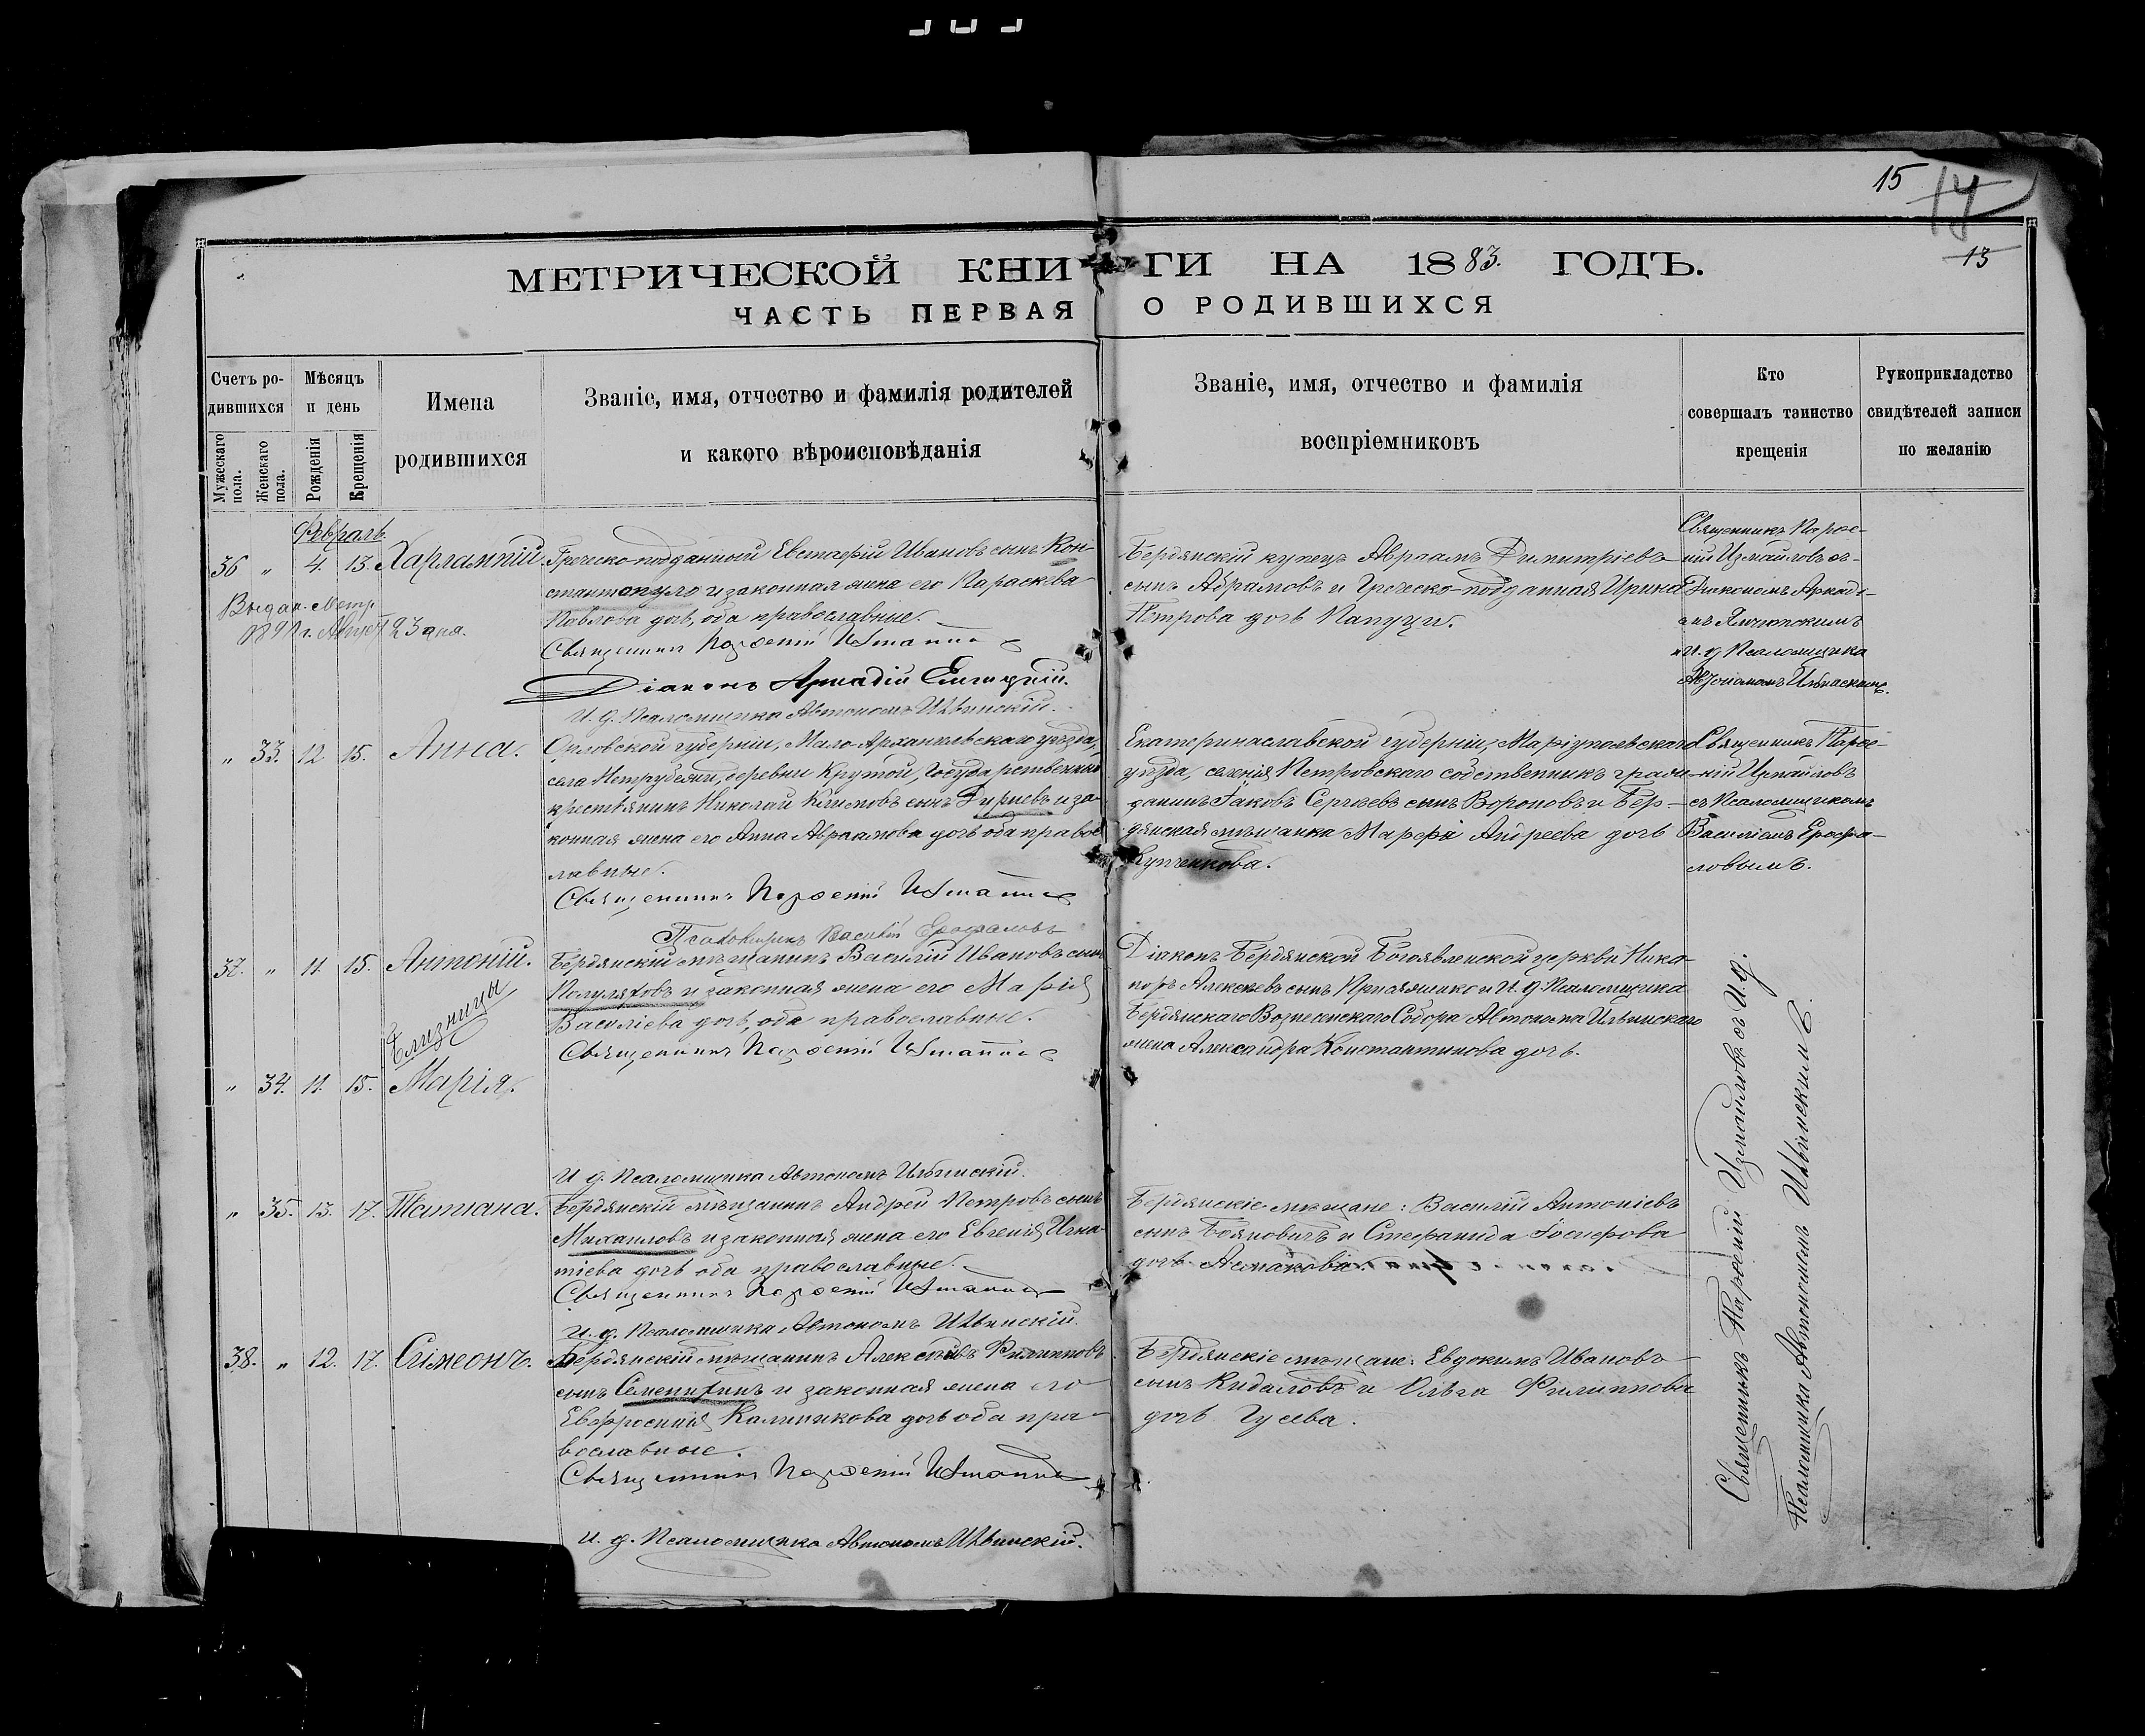 15 14
13
МЕТРИЧЕСКОЙ КНИГИ НА 1883. ГОДЪ.
ЧАСТЬ ПЕРВАЯ О РОДИВШИХСЯ
Счетъ родившихся
Мужескаго пола.
Женскаго пола.
Мѣсяцъ и день
Рожденія
Крещенія
Имена
родившихся
Званіе, имя, отчество и фамилія родителей
и какого вѣроисповѣданія
Званіе, имя, отчество и фамилія
воспріемниковъ
Кто
совершалъ таинство
крещенія
Рукоприкладство
свидѣтелей записи
по желанію
Февраль.
36 " 4. 13. Харлампій.
Выдан. Метр.
Август 23 дня.
Греческо-подданный Евстафій Ивановъ сынъ Кон-
стантопуло и законная жена его Параскева
Павлова дочь, оба православные.
Священникъ Парфеній
Діаконъ Аркадій
И. д. Псаломщика Автономъ Ильинскій.
Бердянскій купецъ Авраамъ Димитріевъ
сынъ Абрамовъ и Греческо-подданная Ирина
Петрова дочь Папуци.
Священникъ Парѳе-
ній Измайловъ съ
Діакономъ Аркаді-
емъ
и И. д. Псаломщика
Автономомъ Ильинскимъ.
" 33. 12. 15. Анна.
Орловской губерніи, Мало-Архангельскаго уѣзда,
села деревни Крутой, Государственный
крестьянинъ Николай Климовъ сынъ и за-
конная жена его Анна Авраамова дочь оба правос-
лавные.
Священникъ Парфеній
Псаломщикъ Василій Ерофаловъ
Екатеринославской губерніи, Маріупольскаго
уѣзда, селенія Петровскаго собственникъ гражд-
данинъ Іаковъ Сергѣевъ сынъ Вороновъ и Бер-
дянская мѣщанка Марфа Андреева дочь
Купченкова.
Священникъ Парѳе-
ній Измайловъ
съ Псаломщикомъ
Василіемъ Ерофа-
ловымъ.
37. " 11. 15. Антоній.
Близнецы
" 34. 11. 15. Марія.
Бердянскій мѣщанинъ Василій Ивановъ сынъ
Полуляховъ и законная жена его Марія
Василіева дочь, оба православные.
Священникъ Парфеній
И. д. Псаломщика Автономъ Ильинскій.
Діаконъ Бердянской Богоявленской церкви Ника-
норъ Алексѣевъ сынъ и И. д. Псаломщика
Бердянскаго Вознесенскаго Собора Автонома Ильинскаго
жена Александра Константинова дочь.
" 35. 13. 17. Татіана.
Бердянскій мѣщанинъ Андрей Петровъ сынъ
Михайловъ и законная жена его Евгенія Игна-
тіева дочь оба православные.
Священникъ Парфеній
И. д. Псаломщика Автономъ Ильинскій.
Бердянскіе мѣщане: Василій Антоніевъ
сынъ Бояновичъ и Стефанида Іосифова
дочь
38. " 12. 17. Сімеонъ.
Бердянскій мѣщанинъ Алексѣй Филипповъ
сынъ и законная жена его
Евфросинія Калиникова дочь оба пра-
вославные.
Священникъ Парфеній
И. д. Псаломщика Автономъ Ильинскій.
Бердянскіе мѣщане: Евдокимъ Ивановъ
сынъ Кидаловъ и Ольга Филиппова
дочь Гусева.
Священникъ Парѳеній Измайловъ съ И. д.
Псаломщика Автономомъ Ильинскимъ.